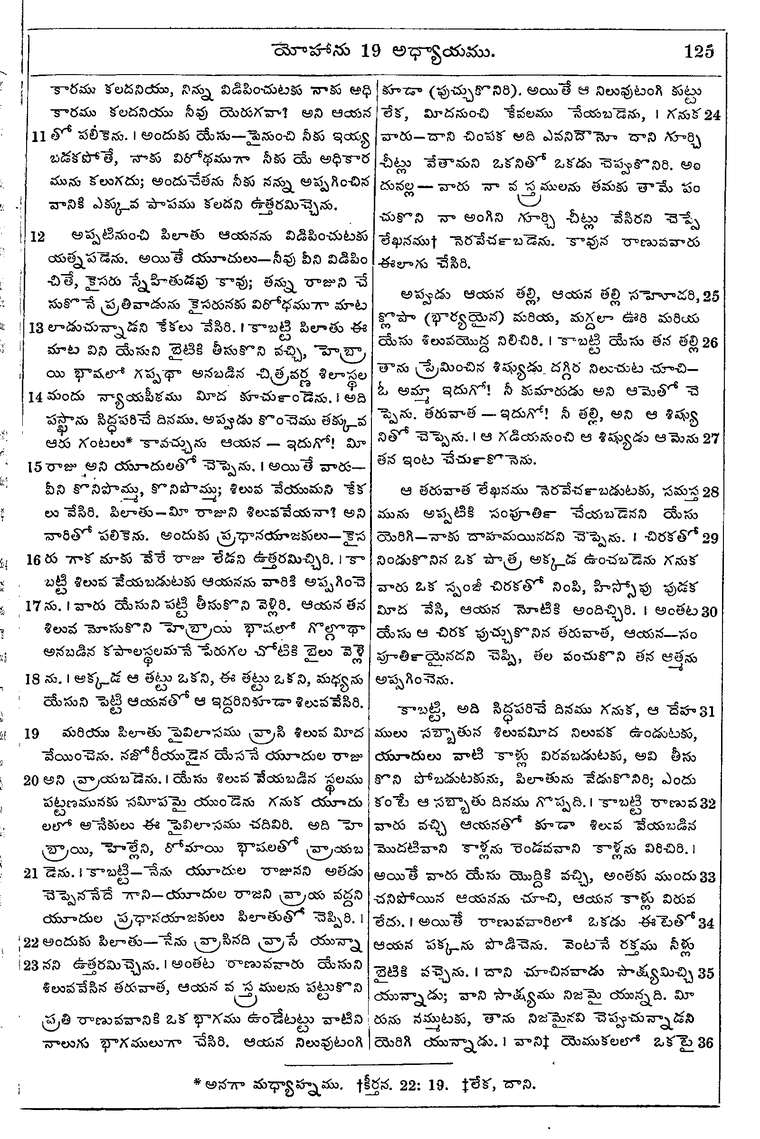 యోహాను 19 అధ్యాయము. 125
కారము కలదనియు, నిన్ను విడిపించుటకు నాకు అధి
కారము కలదనియు నీవు యెరుగవా? అని ఆయన
11 తో పలికెను. । అందుకు యేసు—పైనుంచి నీకు ఇయ్య
బడకపోతే, నాకు విరోధముగా నీకు యే అధికార
మును కలుగదు; అందుచేతను నీకు నన్ను అప్పగించిన
వానికి ఎక్కువ పాపము కలదని ఉత్తరమిచ్చెను.
12 అప్పటినుంచి పిలాతు ఆయనను విడిపించుటకు
యత్నపడెను. అయితే యూదులు—నీవు వీని విడిపిం
చితే, కైసరు స్నేహితుడవు కావు; తన్ను రాజుని చే
సుకొనే ప్రతివాడును కైసరునకు విరోధముగా మాట
13 లాడుచున్నాడని కేకలు వేసిరి. । కాబట్టి పిలాతు ఈ
మాట విని యేసుని బైటికి తీసుకొని వచ్చి, హెబ్రా
యి భాషలో గప్పథా అనబడిన చిత్రవర్ణ శిలాస్థల
14 మందు న్యాయపీఠము మీద కూచుఁండెను. । అది
పస్ఖాను సిద్ధపరిచే దినము. అప్పుడు కొంచెము తక్కువ
ఆరు గంటలు* కావచ్చును ఆయన — ఇదుగో! మీ
15 రాజు అని యూదులతో చెప్పెను. । అయితే వారు—
వీని కొనిపొమ్ము, కొనిపొమ్ము; శిలువ వేయుమని కేక
లు వేసిరి. పిలాతు—మీ రాజుని శిలువవేయనా? అని
వారితో పలికెను. అందుకు ప్రధానయాజకులు—కైస
16 రు గాక మాకు వేరే రాజు లేడని ఉత్తరమిచ్చిరి. । కా
బట్టి శిలువ వేయబడుటకు ఆయనను వారికి అప్పగించె
17 ను. । వారు యేసుని పట్టి తీసుకొని వెళ్లిరి. ఆయన తన
శిలువ మోసుకొని హెబ్రాయి భాషలో గొల్గొథా
అనబడిన కపాలస్థలమనే పేరుగల చోటికి బైలు వెళ్లె
18 ను. । అక్కడ ఆ తట్టు ఒకని, ఈ తట్టు ఒకని, మధ్యను
యేసుని పెట్టి ఆయనతో ఆ ఇద్దరినికూడా శిలువవేసిరి.
19 మరియు పిలాతు పైవిలాసము వ్రాసి శిలువ మీద
వేయించెను. నజోరీయుడైన యేసనే యూదుల రాజు
20 అని వ్రాయబడెను. । యేసు శిలువ వేయబడిన స్థలము
పట్టణమునకు సమీపమై యుండెను గనుక యూదు
లలో అనేకులు ఈ పైవిలాసము చదివిరి. అది హె
బ్రాయి, హెల్లేని, రోమాయి భాషలతో వ్రాయబ
21 డెను. । కాబట్టి—నేను యూదుల రాజునని అతడు
చెప్పెననేదే గాని—యూదుల రాజని వ్రాయ వద్దని
యూదుల ప్రధానయాజకులు పిలాతుతో చెప్పిరి. ।
22 అందుకు పిలాతు—నేను వ్రాసినది వ్రాసే యున్నా
23 నని ఉత్తరమిచ్చెను. । అంతట రాణువవారు యేసుని
శిలువవేసిన తరువాత, ఆయన వస్త్రములను పట్టుకొని
ప్రతి రాణువవానికి ఒక భాగము ఉండేటట్టు వాటిని
నాలుగు భాగములుగా చేసిరి. ఆయన నిలువుటంగి
కూడా (పుచ్చుకొనిరి). అయితే ఆ నిలువుటంగి కుట్టు
లేక, మీదనుంచి కేవలము నేయబడెను, । గనుక 24
వారు—దాని చింపక అది ఎవనిదౌనో దాని గూర్చి
చీట్లు వేతామని ఒకనితో ఒకడు చెప్పుకొనిరి. అం
దువల్ల — వారు నా వస్త్రములను తమకు తామే పం
చుకొని నా అంగిని గూర్చి చీట్లు వేసిరని చెప్పే
లేఖనము† నెరవేర్చఁబడెను. కావున రాణువవారు
ఈలాగు చేసిరి.
అప్పుడు ఆయన తల్లి, ఆయన తల్లి సహెూదరి, 25
క్లొపా (భార్యయైన) మరియ, మగ్దలా ఊరి మరియ
యేసు శిలువయొద్ద నిలిచిరి. । కాబట్టి యేసు తన తల్లి 26
తాను ప్రేమించిన శిష్యుడు దగ్గిర నిలుచుట చూచి—
ఓ అమ్మా ఇదుగో! నీ కుమారుడు అని ఆమెతో చె
ప్పెను. తరువాత — ఇదుగో! నీ తల్లి, అని ఆ శిష్యు
నితో చెప్పెను. । ఆ గడియనుంచి ఆ శిష్యుడు ఆమెను 27
తన ఇంట చేర్చుకొనెను.
ఆ తరువాత లేఖనము నెరవేర్చబడుటకు, సమస్త 28
మును అప్పటికి సంపూర్తి చేయబడెనని యేసు
యెరిగి—నాకు దాహమయినదని చెప్పెను. । చిరకతో 29
నిండుకొనిన ఒక పాత్ర అక్కడ ఉంచబడెను గనుక
వారు ఒక స్పంజీ చిరకతో నింపి, హిస్సోపు పుడక
మీద వేసి, ఆయన నోటికి అందిచ్చిరి. । అంతట 30
యేసు ఆ చిరక పుచ్చుకొనిన తరువాత, ఆయన—సం
పూర్తియైనదని చెప్పి, తల వంచుకొని తన ఆత్మను
అప్పగించెను.
కాబట్టి, అది సిద్ధపరిచే దినము గనుక, ఆ దేహ 31
ములు సబ్బాతున శిలువమీద నిలువక ఉండుటకు,
యూదులు వాటి కాళ్లు విరవబడుటకు, అవి తీసు
కొని పోబడుటకును, పిలాతును వేడుకొనిరి; ఎందు
కంటే ఆ సబ్బాతు దినము గొప్పది. । కాబట్టి రాణువ 32
వారు వచ్చి ఆయనతో కూడా శిలువ వేయబడిన
మొదటివాని కాళ్లను రెండవవాని కాళ్లను విరిచిరి. ।
అయితే వారు యేసు యొద్దికి వచ్చి, అంతకు ముందు 33
చనిపోయిన ఆయనను చూచి, ఆయన కాళ్లు విరువ
లేదు. । అయితే రాణువవారిలో ఒకడు ఈటెతో 34
ఆయన పక్కను పొడిచెను. వెంటనే రక్తము నీళ్లు
బైటికి వచ్చెను. । దాని చూచినవాడు సాక్ష్యమిచ్చి 35
యున్నాడు; వాని సాక్ష్యము నిజమై యున్నది. మీ
రును నమ్ముటకు, తాను నిజమైనవి చెప్పుచున్నాడని
యెరిగి యున్నాడు. । వాని‡ యెముకలలో ఒకటై 36
* అనగా మధ్యాహ్నము. †కీర్తన. 22: 19. ‡లేక, దాని.